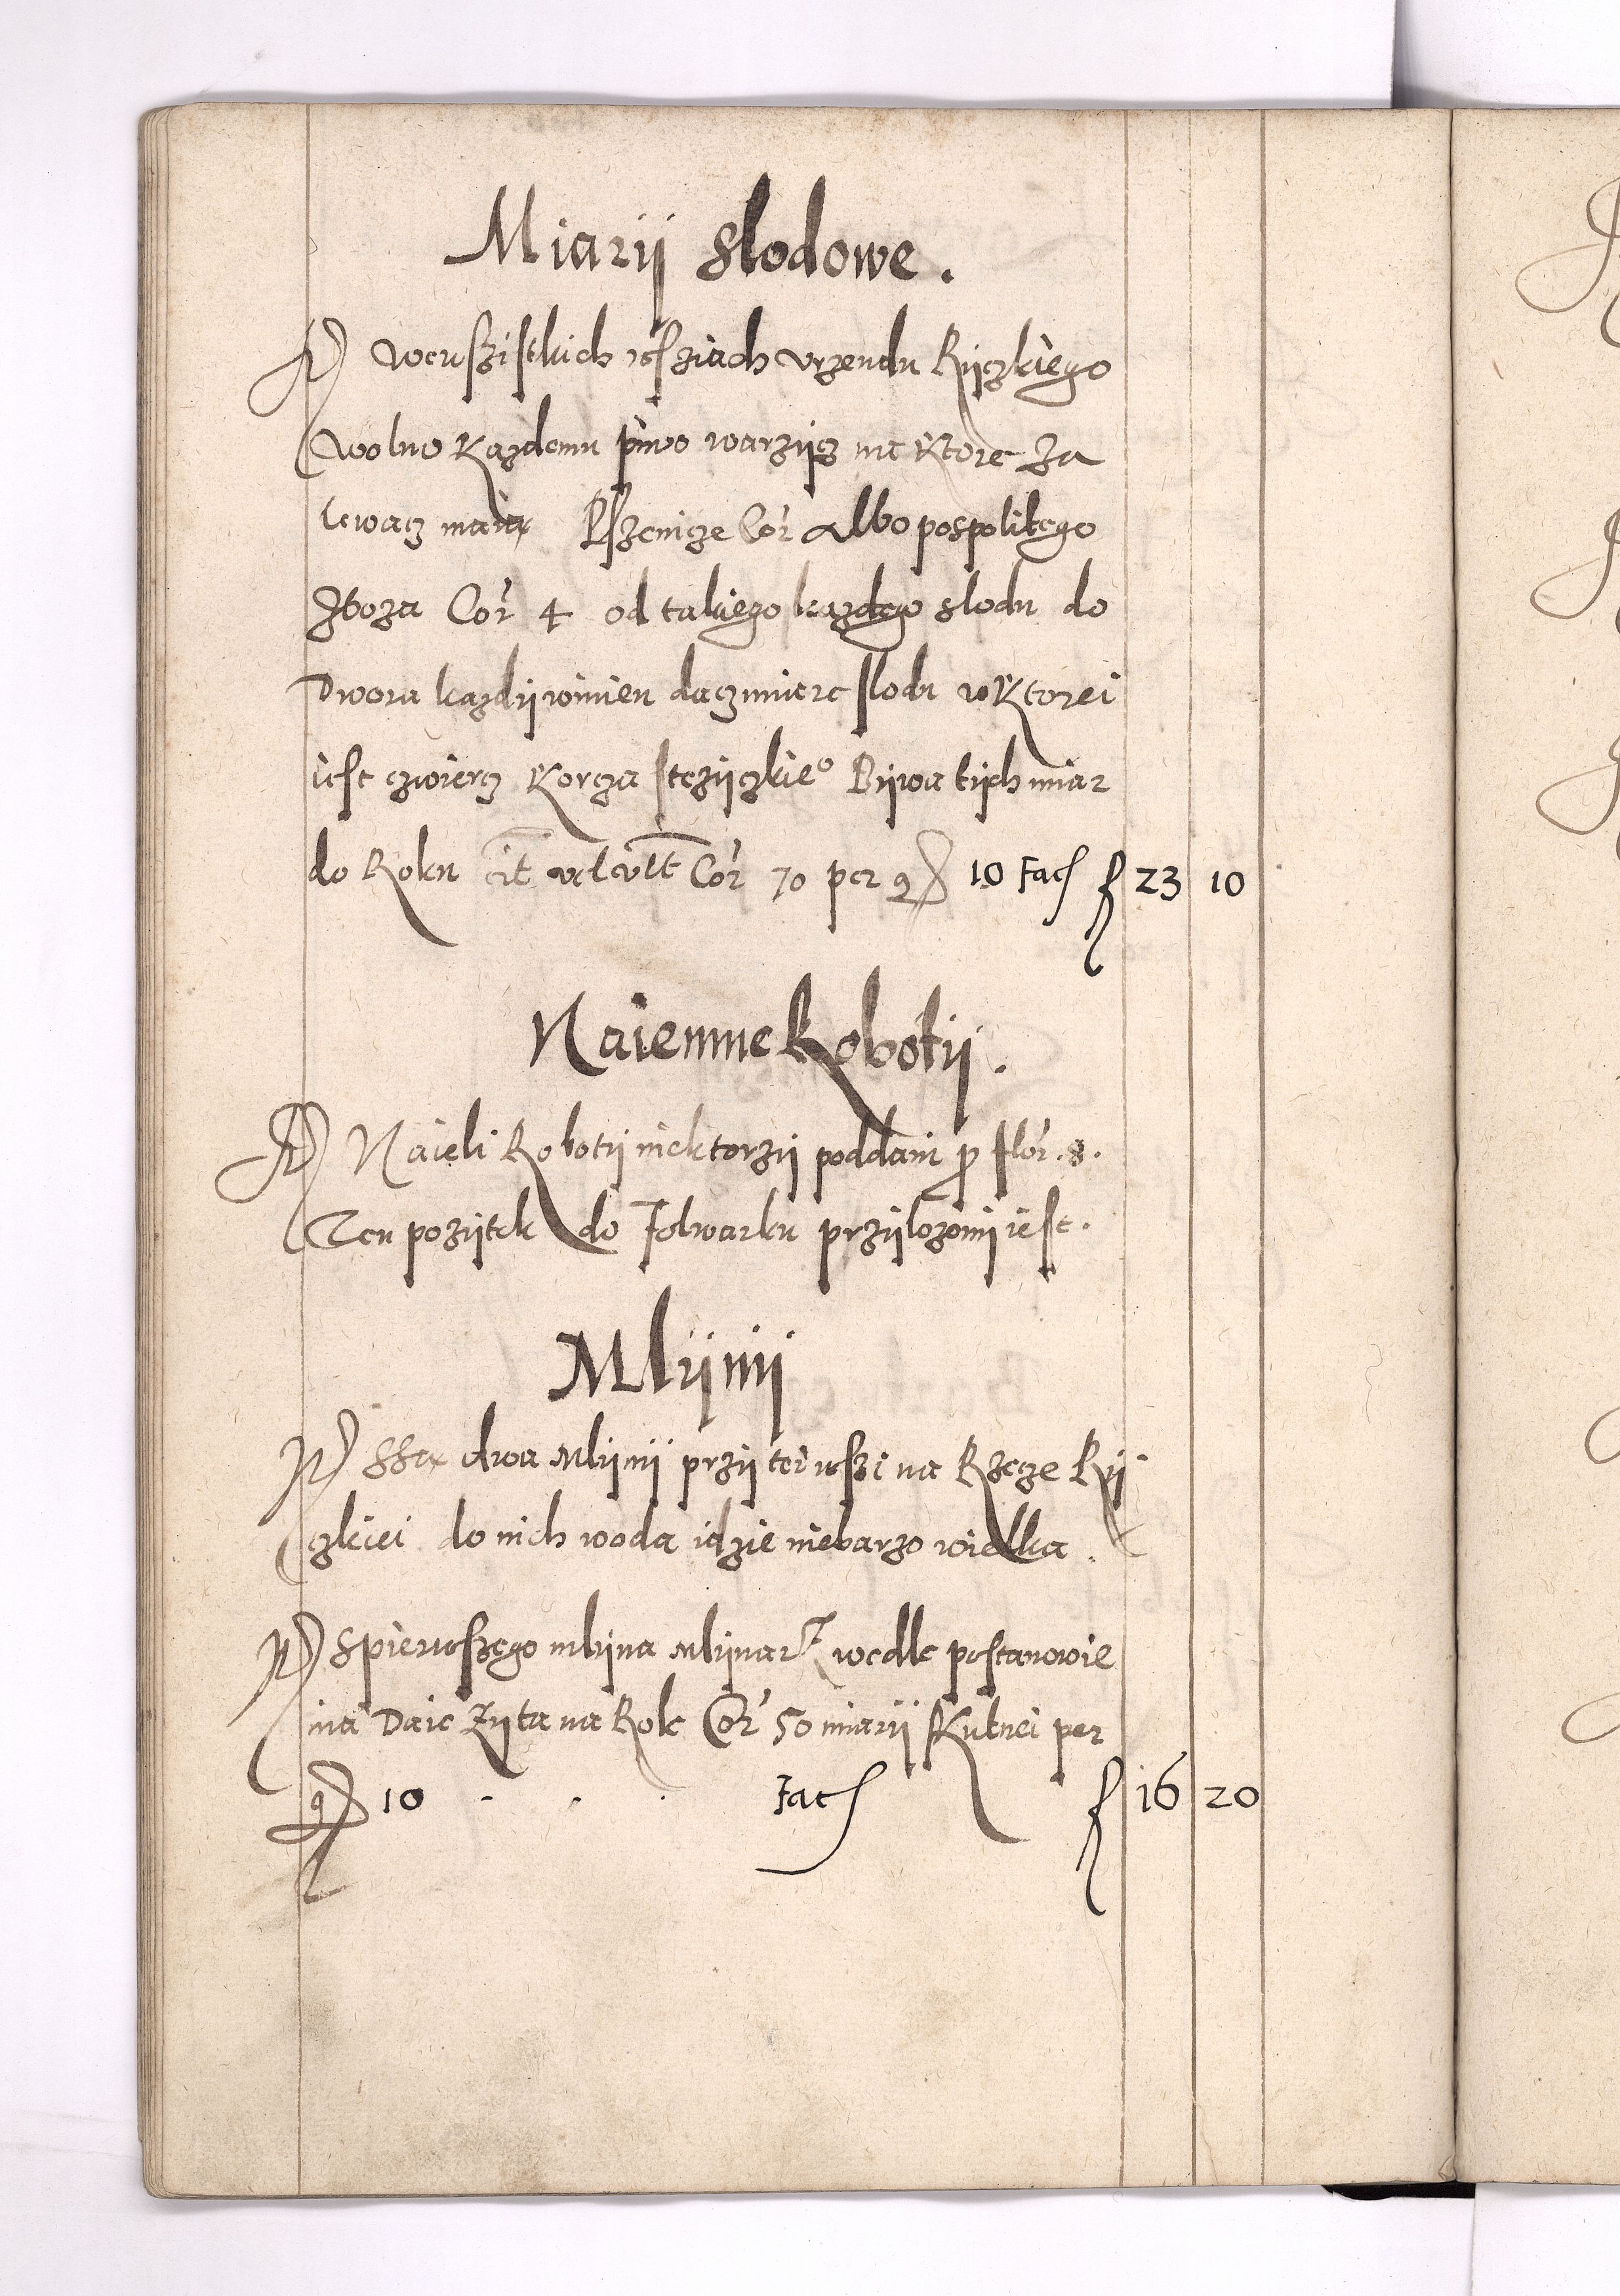 Miarÿ slodowe.
Wewszistkich wsziach vrzendu Rÿczkiego
wolno Kazdemu piwo warzÿcz na Ktore Za
lewacz maia Pszenicze Cor albo pospolitego
Zboza Cor 4 od takiego kazdego slodu do
Dwora kazdÿ winien dacz miare slodu w Ktorei
iest czwiercz Korcza stezÿczkieo Bÿwa tÿch miar
do Roku cit vel vlt Cor 70 per g 10 facs f 23 10
Naiemne Robotÿ.
Naieli Robotÿ niektorzÿ poddani p flor. 8.
Ten pozÿtek do Folwarku przÿlozonÿ iest.
Mlÿnÿ
SSa dwa Mlÿnÿ przÿ tei wszi na Rzecze Rÿ
czkiei do nich woda idzie niebarzo wielka.
Spierwszego mlÿna Mlÿnarz wedle postanowie
nia Daie Zÿta na Rok Cor 50 miarÿ skutnei per
g 10 . . . facs f 16 20